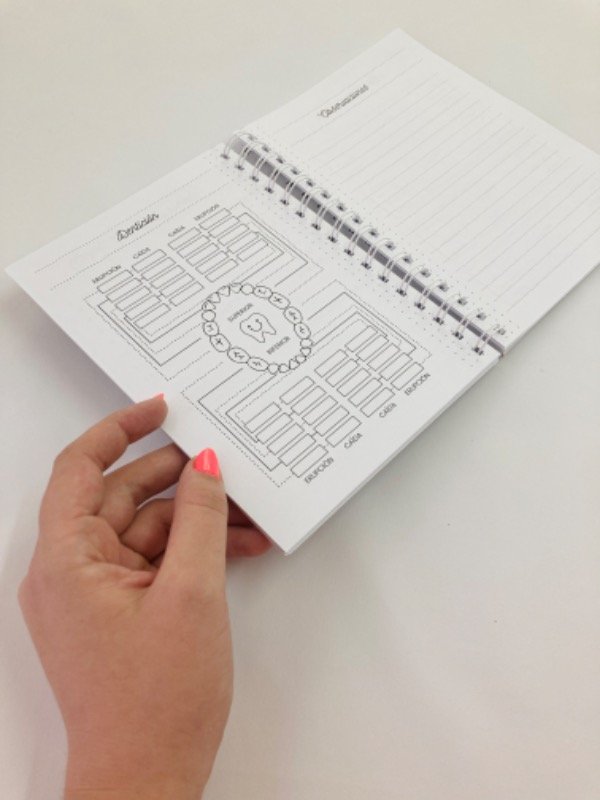 Dentición
Observaciones
ERUPCIÓN
CAÍDA
CAÍDA
ERUPCIÓN
SUPERIOR
INFERIOR
ERUPCIÓN
CAÍDA
CAÍDA
ERUPCIÓN